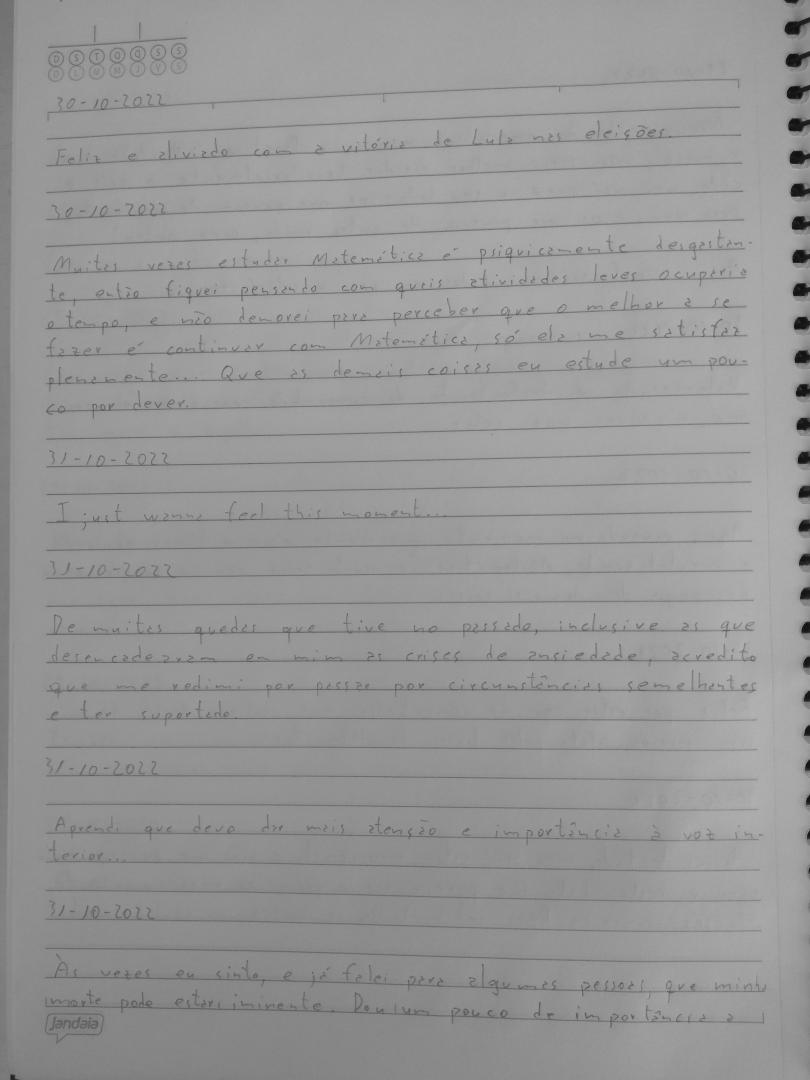 D S T Q Q S S
D L M M J V S
30-10-2022
Feliz e aliviado com a vitória de Lula nas eleições.
30-10-2022
Muitas vezes estudar Matemática é psiquicamente desgastan-
te, então fiquei pensando com quais atividades leves ocuparia
o tempo, e não demorei para perceber que o melhor a se
fazer é continuar com Matemática, só ela me satisfaz
plenamente... Que as demais coisas eu estude um pou-
co por dever.
31-10-2022
I just wanna feel this moment...
31-10-2022
De muitas quedas que tive no passado, inclusive as que
desencadearam em mim as crises de ansiedade, acredito
que me redimi por passar por circunstâncias semelhantes
e ter suportado.
31-10-2022
Aprendi que devo dar mais atenção e importância à voz in-
terior...
31-10-2022
Às vezes eu sinto, e já falei para algumas pessoas, que minha
morte pode estar iminente. Dou um pouco de importância a
Jandaia